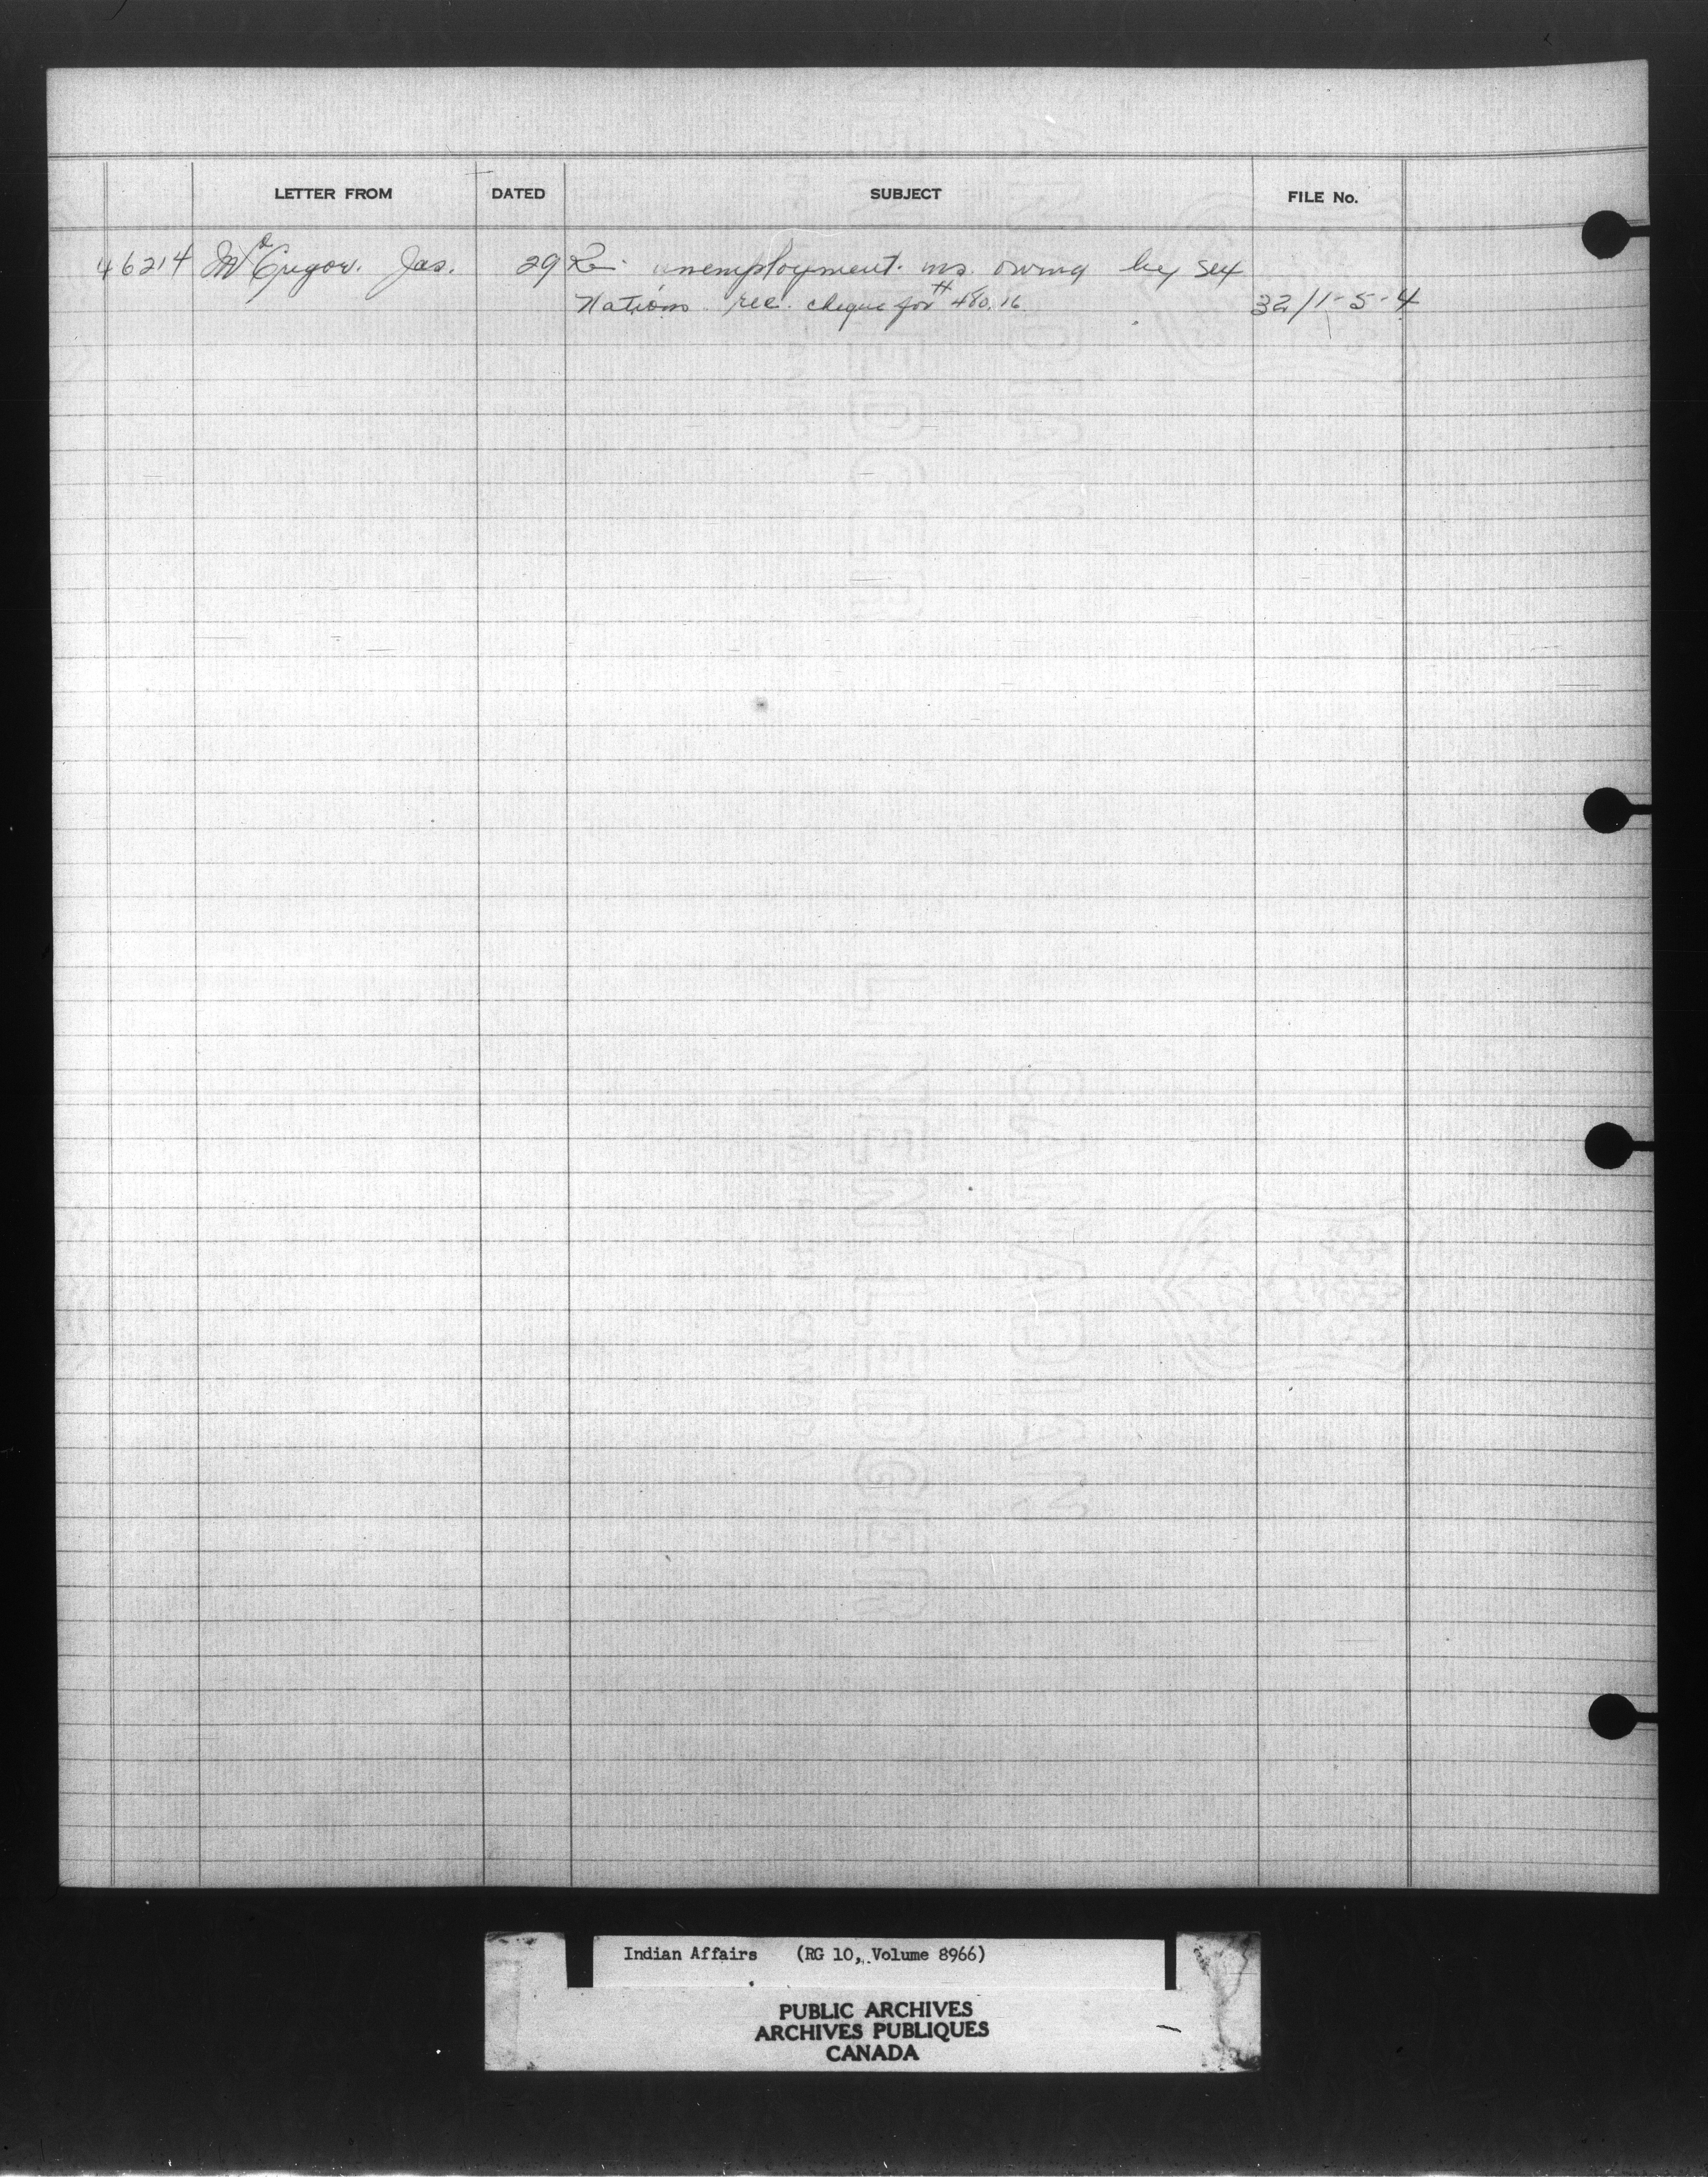 LETTER FROM DATED SUBJECT FILE No.
46214 McGregor. Jas. 29 Re: unemployment ins. owing by Six
Nations rec. cheque for $480.16 32/1-5-4
Indian Affairs (RG 10, Volume 8966)
PUBLIC ARCHIVES
ARCHIVES PUBLIQUES
CANADA